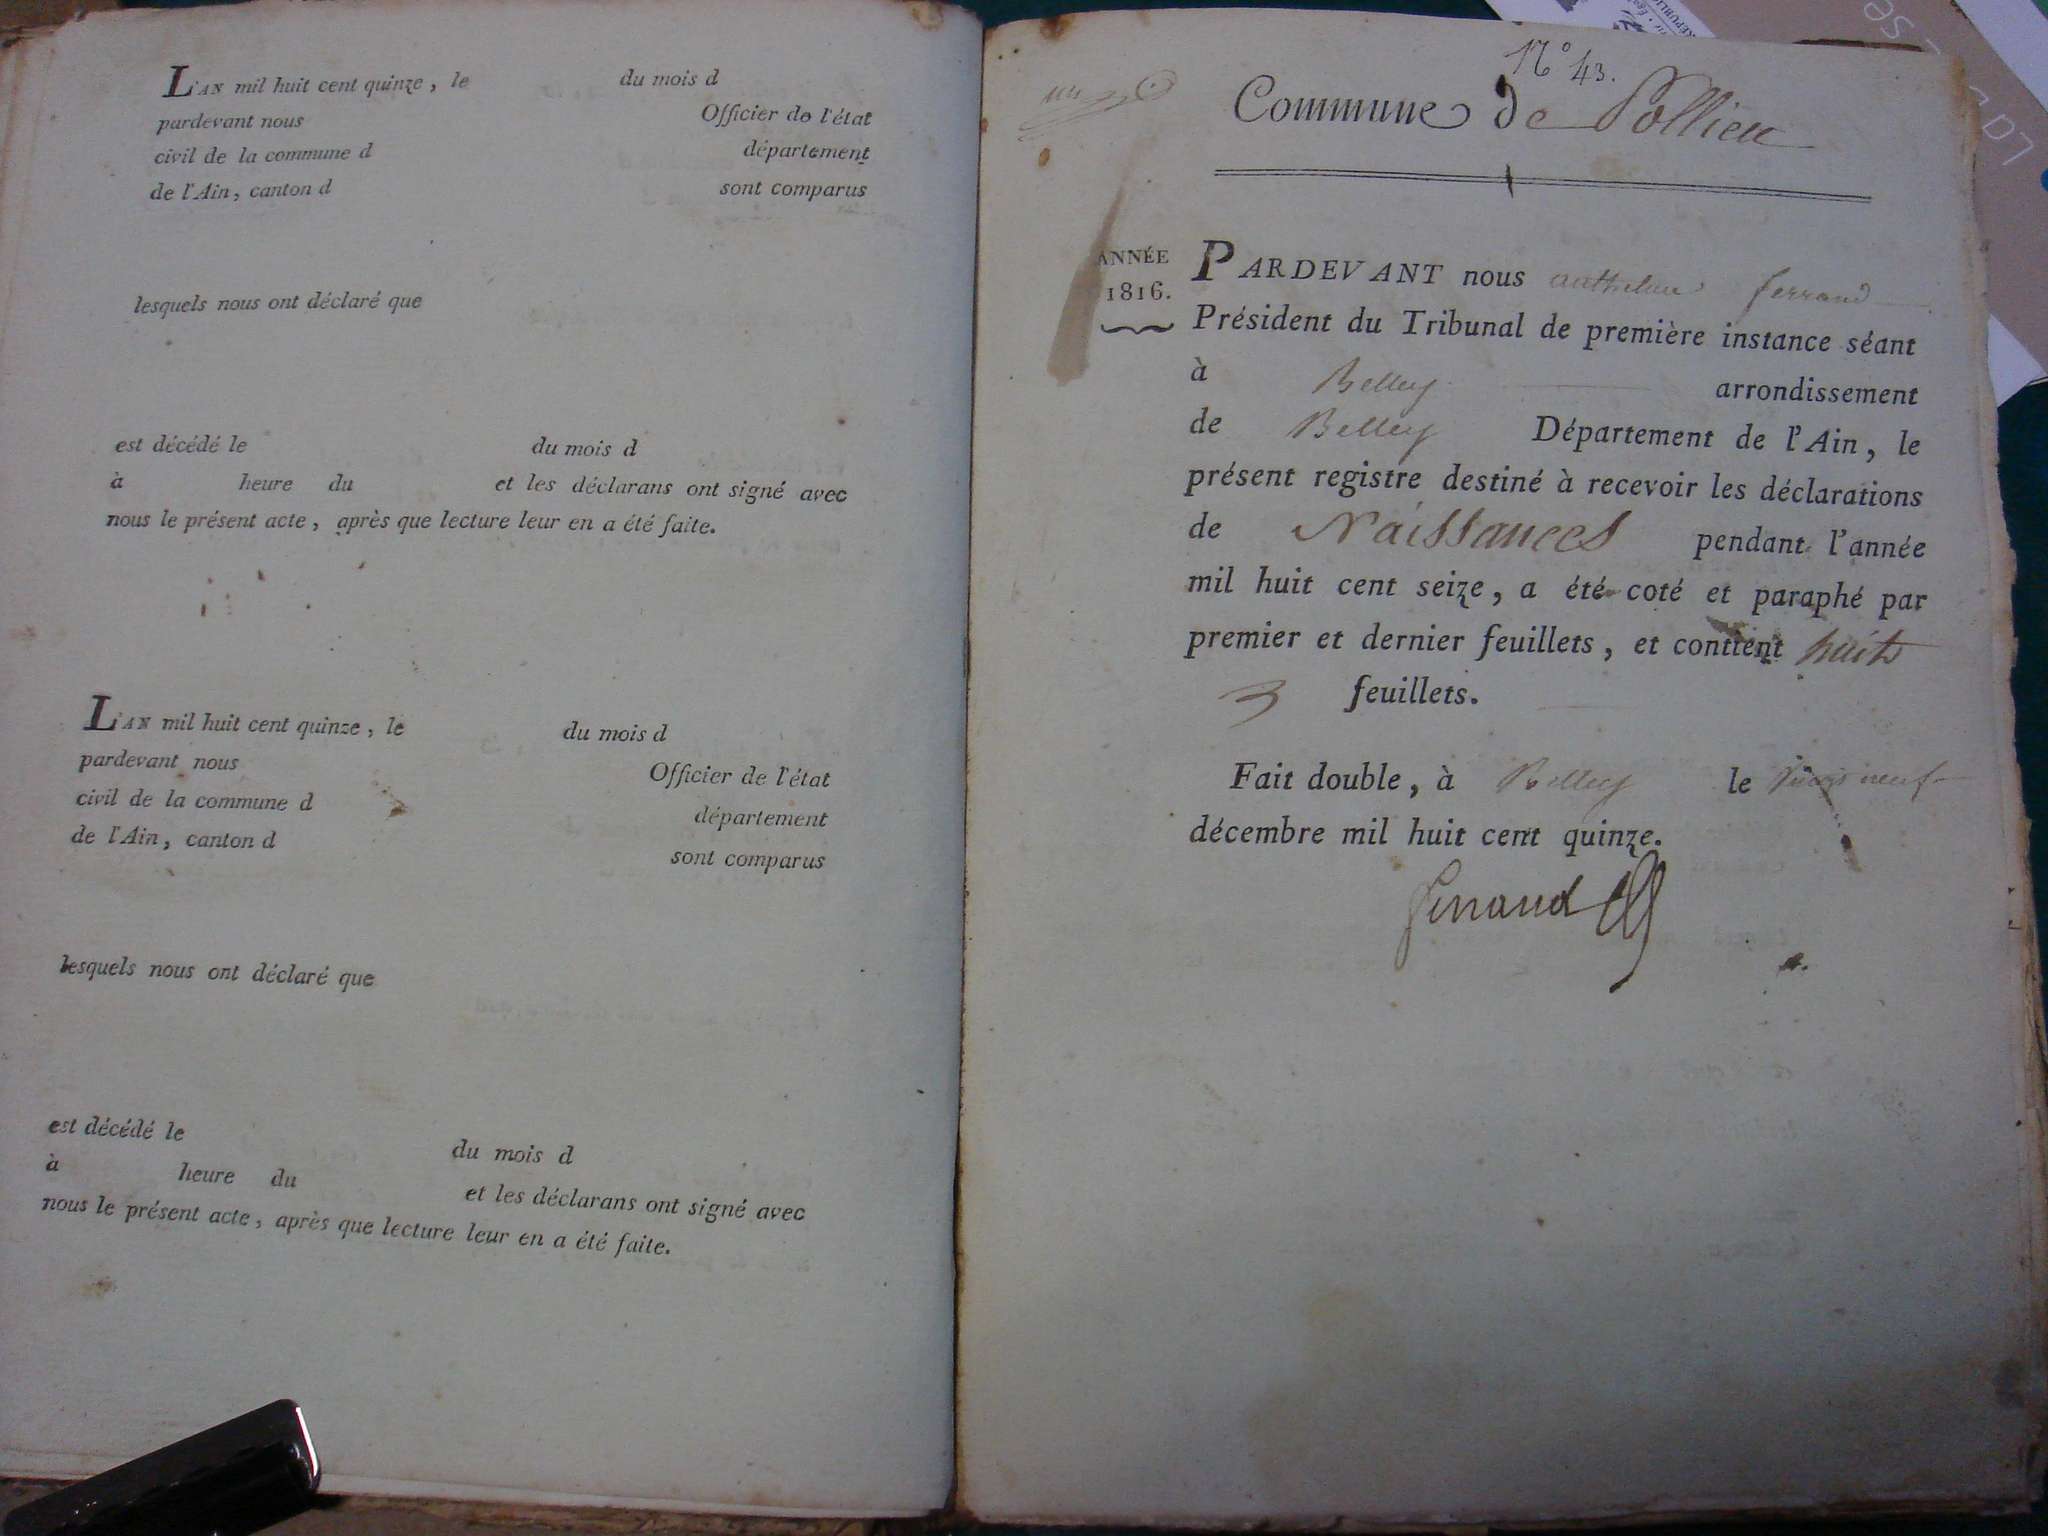 L'AN mil huit cent quinze, le du mois d
pardevant nous Officier de l'état
civil de la commune d département
de l'Ain, canton d sont comparus
lesquels nous ont déclaré que
est décédé le du mois d
à heure du et les déclarans ont signé avec
nous le présent acte, après que lecture leur en a été faite.
L'AN mil huit cent quinze, le du mois d
pardevant nous Officier de l'état
civil de la commune d département
de l'Ain, canton d sont comparus
lesquels nous ont déclaré que
est décédé le du mois d
à heure du et les déclarans ont signé avec
nous le présent acte, après que lecture leur en a été faite.
N° 43.
Commune de Pollieu
ANNÉE
1816.
PARDEVANT nous anthelme ferrand
Président du Tribunal de première instance séant
à Belley arrondissement
de Belley Département de l'Ain, le
présent registre destiné à recevoir les déclarations
de Naissances pendant l'année
mil huit cent seize, a été coté et paraphé par
premier et dernier feuillets, et contient huit
feuillets.
Fait double, à Belley le neuf
décembre mil huit cent quinze.
Ferrand